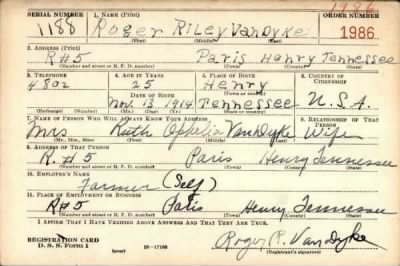 1986
SERIAL NUMBER 1. NAME (Print) ORDER NUMBER
1188 Roger Riley VanDyke 1986
(First) (Middle) (Last)
3. ADDRESS (Print)
R#5 Paris Henry Tennessee
(Number and street or R. F. D. number) (Town) (County) (State)
3. TELEPHONE 4. AGE IN YEARS 5. PLACE OF BIRTH 6. COUNTRY OF CITIZENSHIP
4802 25 Henry
DATE OF BIRTH (Town or county)
Nov. 13 1914 Tennessee U.S.A.
(Exchange) (Number) (Mo.) (Day) (Yr.) (State or country)
7. NAME OF PERSON WHO WILL ALWAYS KNOW YOUR ADDRESS 8. RELATIONSHIP OF THAT PERSON
Mrs Ruth Ophelia VanDyke Wife
(Mr., Mrs., Miss) (First) (Middle) (Last)
9. ADDRESS OF THAT PERSON
R.#5 Paris Henry Tennessee
(Number and street or R. F. D. number) (Town) (County) (State)
10. EMPLOYER'S NAME
Farmer (Self)
11. PLACE OF EMPLOYMENT OR BUSINESS
R#5 Paris Henry Tennessee
(Number and street or R. F. D. number) (Town) (County) (State)
I AFFIRM THAT I HAVE VERIFIED ABOVE ANSWERS AND THAT THEY ARE TRUE.
REGISTRATION CARD Roger R. VanDyke
D. S. S. Form 1 (over) 16-17105 (Registrant's signature)